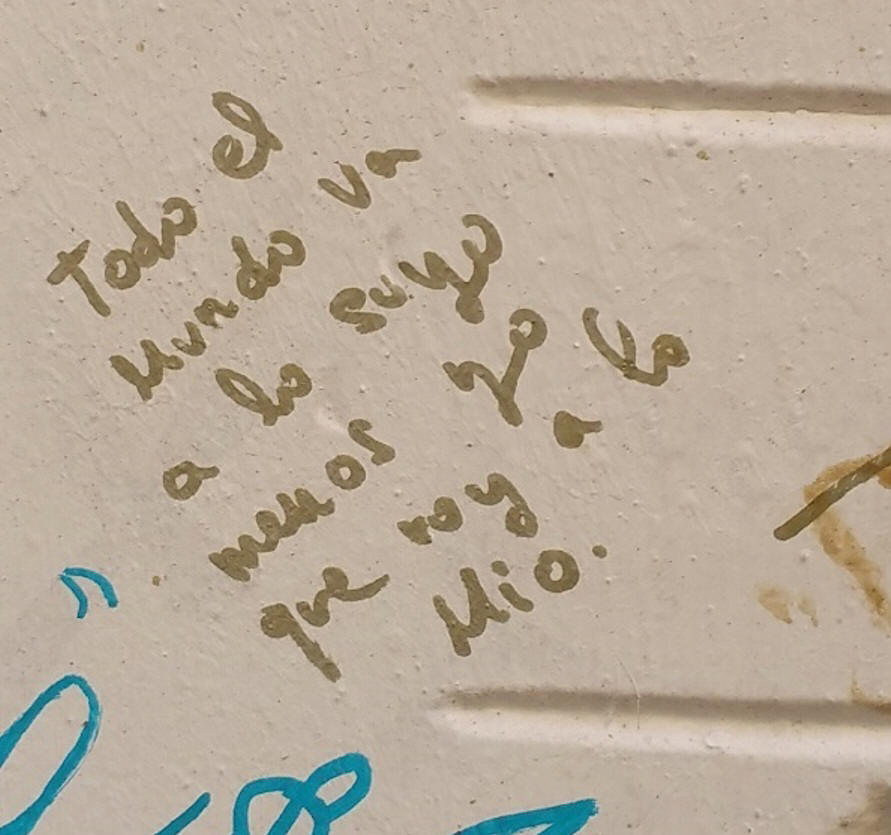 Todo el
Mundo va
a lo suyo
menos yo
que voy a lo
Mio.